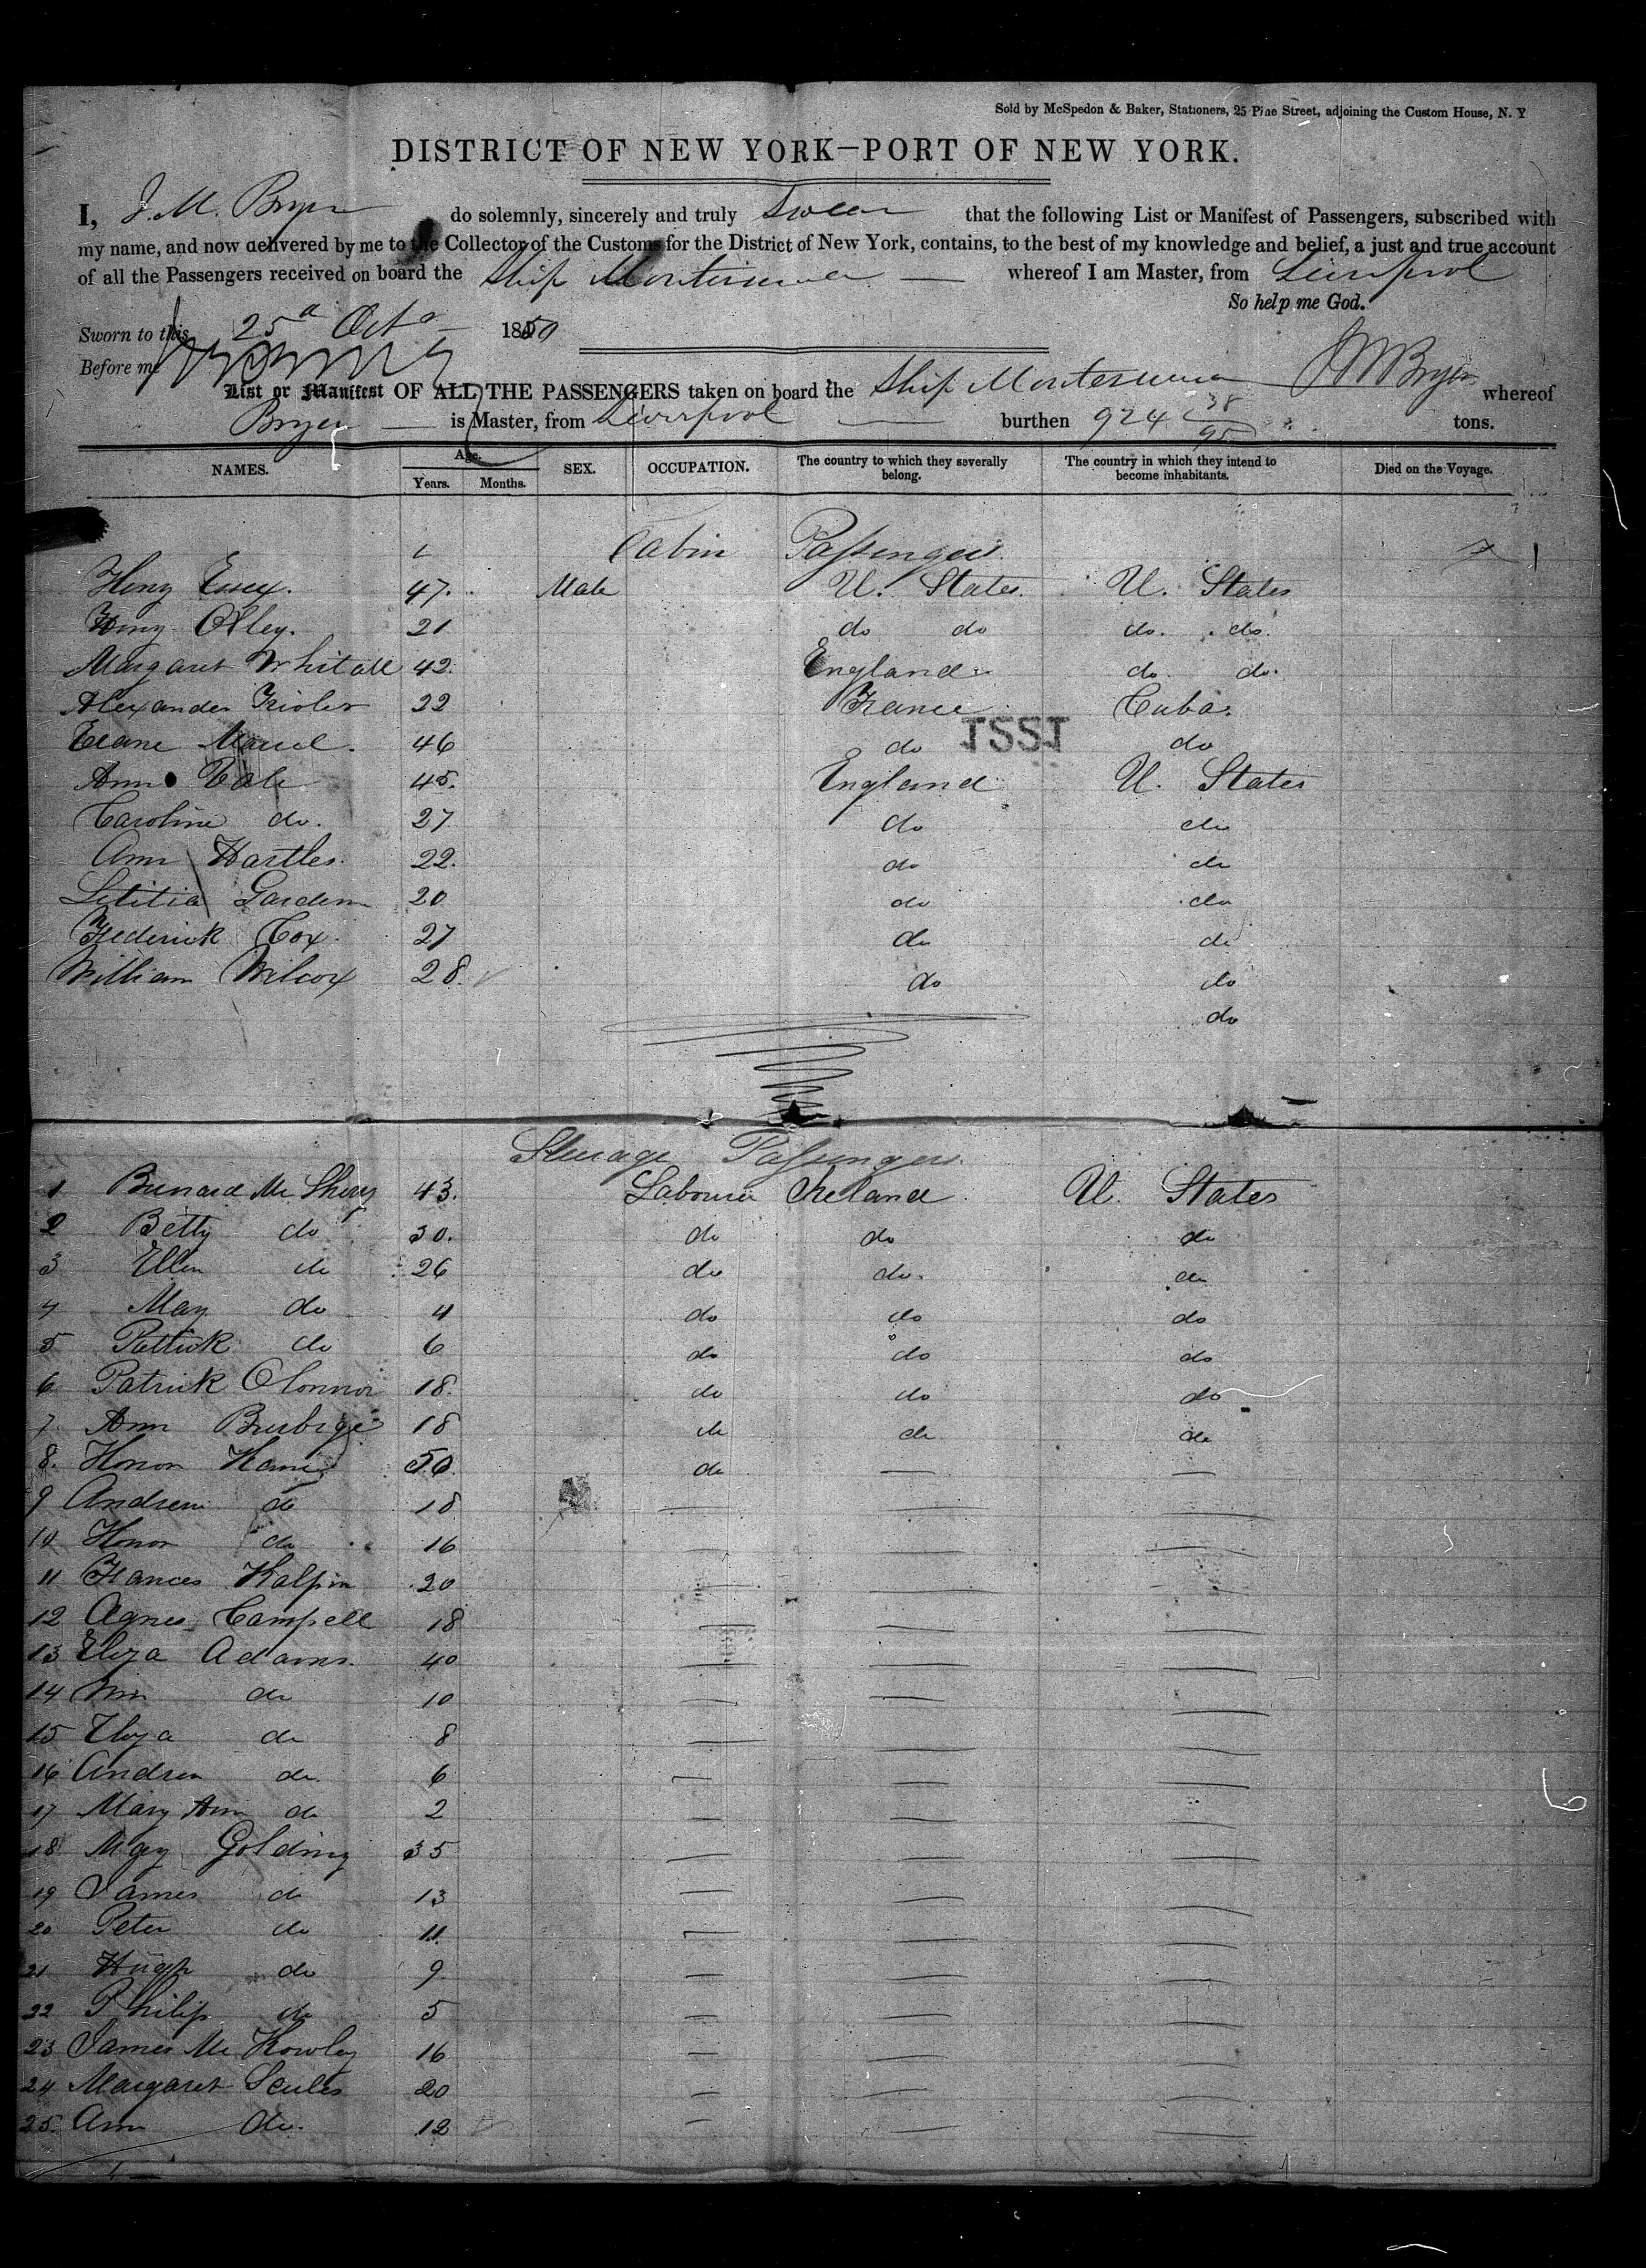 Sold by McSpedon & Baker, Stationers, 25 Pine Street, adjoining the Custom House, N. Y
DISTRICT OF NEW YORK—PORT OF NEW YORK.
I, J. M. Bryer do solemnly, sincerely and truly Swear that the following List or Manifest of Passengers, subscribed with
my name, and now delivered by me to the Collector of the Customs for the District of New York, contains, to the best of my knowledge and belief, a just and true account
of all the Passengers received on board the Ship Montezuma whereof I am Master, from Liverpool
So help me God.
Sworn to this 25 Oct 1850
Before me
JM Bryer
List or Manifest OF ALL THE PASSENGERS taken on board the Ship Montezuma whereof
Bryer is Master, from Liverpool burthen 924 38/95 tons.
NAMES. Age. Years. Months. SEX. OCCUPATION. The country to which they severally belong. The country in which they intend to become inhabitants. Died on the Voyage.
Cabin Passengers
Heny Essex. 47. Male U. States. U. States
Heny Olley. 21 do do do. do.
Margaret Whitall 42. England do. do.
Alexander 22 France Cuba.
46 do do
1551
Ann 45. England U. States
Caroline do. 27 do do
Ann Hartles. 22. do do
Letitia Gardem 20 do do
Frederick Cox. 27 do do
William Wilcox 28. do do
do
Steerage Passengers
1 Bernard Mc Shery 43. Labourer Ireland U. States
2 Betty do 30. do do do
3 Ellen do 26 do do. do
4 Mary do 4 do do do
5 Pattrick do 6 do do do
6 Patrick OConnor 18. do do do
7 Ann 18 do do do
8. Honor 50. do — —
9 Andrew do 18 — — —
14 Honor do 16 — — —
11 Frances Halpin 20 — — —
12 Agnes Campell 18 — — —
13 Eliza Adams. 40 — — —
14 Wm do 10 — — —
15 Eliza do 8 — — —
16 Andrew do. 6 — — —
17 Mary Ann do 2 — — —
18 Mary Golding 35 — — —
19 James do 13 — — —
20 Peter do 11. — — —
21 Hugh do 9. — — —
22 Philip do 5 — — —
23 James Mc Kowley 16 — — —
24 Margaret Scules 20 — — —
25. Ann do. 12 — — —